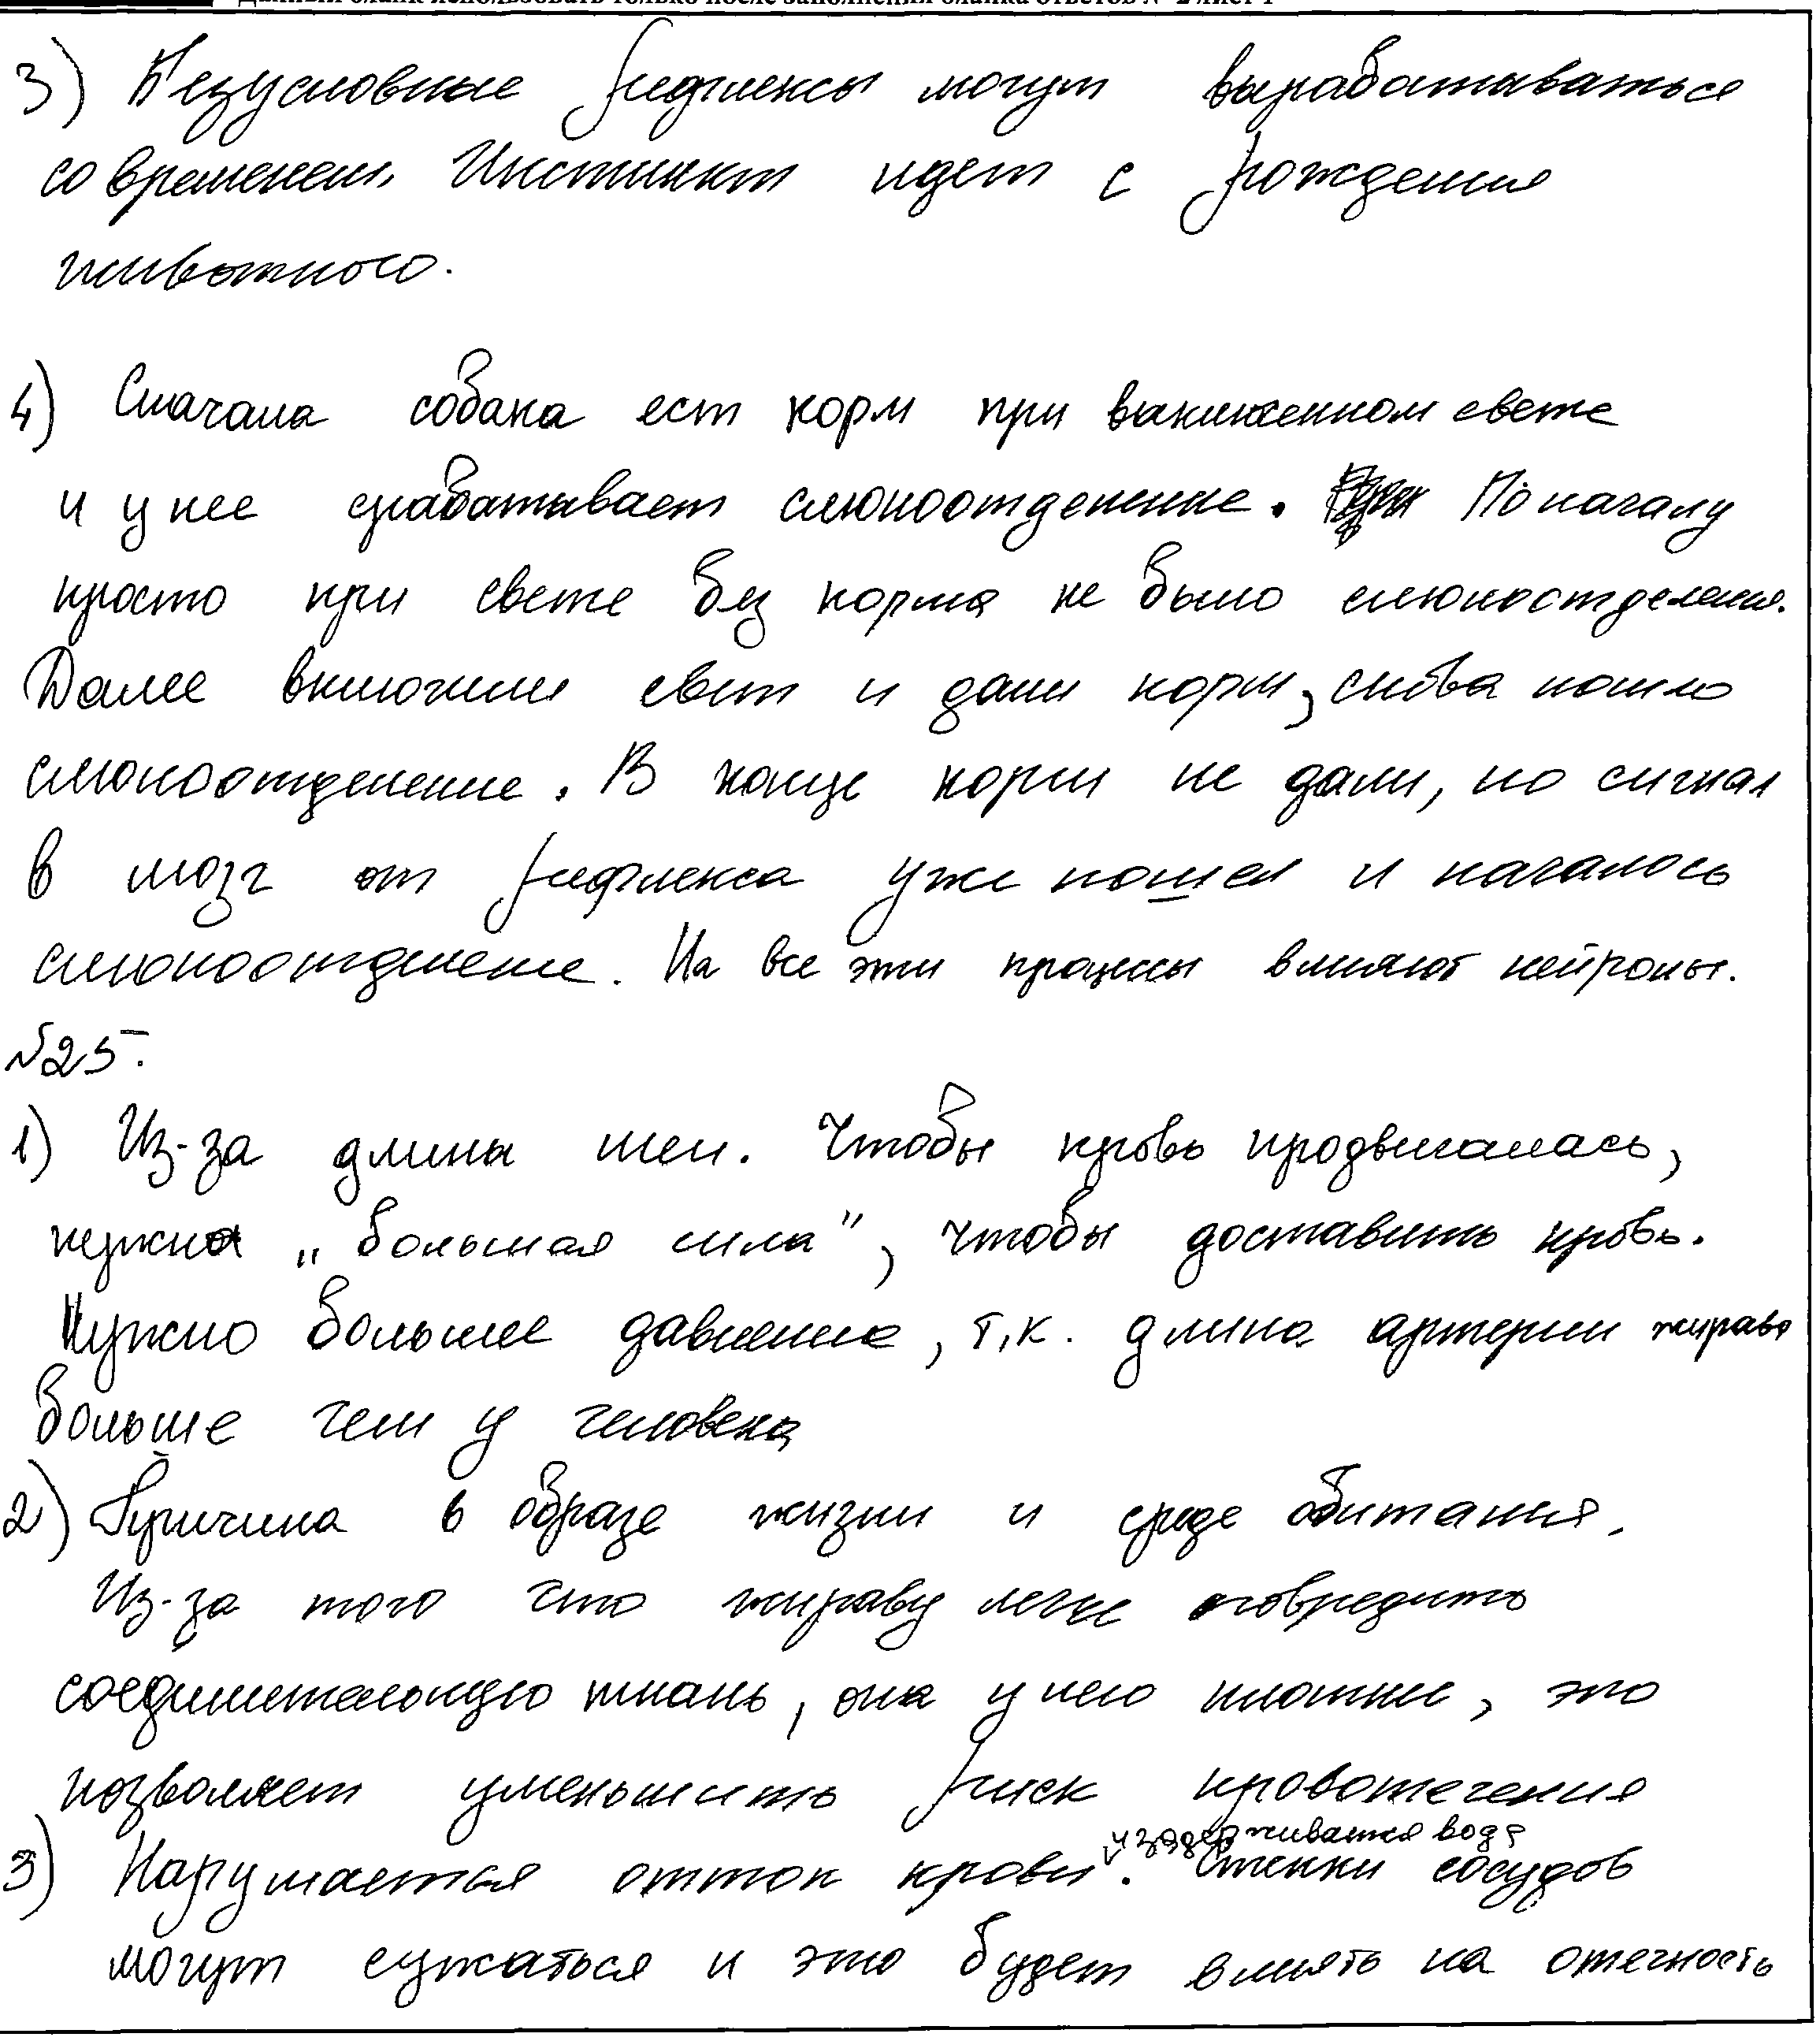 Данный бланк использовать только после заполнения бланка ответов № 2 лист 1
3) Безусловные рефлексы могут вырабатываться
со временем. Инстинкт идет с рождения
животного.
4) Сначала собака ест корм при включенном свете
и у нее срабатывает слюноотделение. По началу
просто при свете без корма не было слюноотделения.
Далее включили свет и дали корм, снова пошло
слюноотделение. В конце корм не дали, но сигнал
в мозг от рефлекса уже пошел и началось
слюноотделение. На все эти процессы влияют нейроны.
№25.
1) Из-за длины шеи. Чтобы кровь продвигалась,
нужна „большая сила", чтобы доставить кровь.
Нужно больше давление, т.к. длина артерии жирафа
больше чем у человека
2) Причина в образе жизни и среде обитания.
Из-за того что жирафу легче повредить
соединительную ткань, она у него плотнее, это
позволяет уменьшить риск кровотечения
и задерживается вода
3) Нарушается отток крови. Стенки сосудов
могут сужаться и это будет влиять на отечность